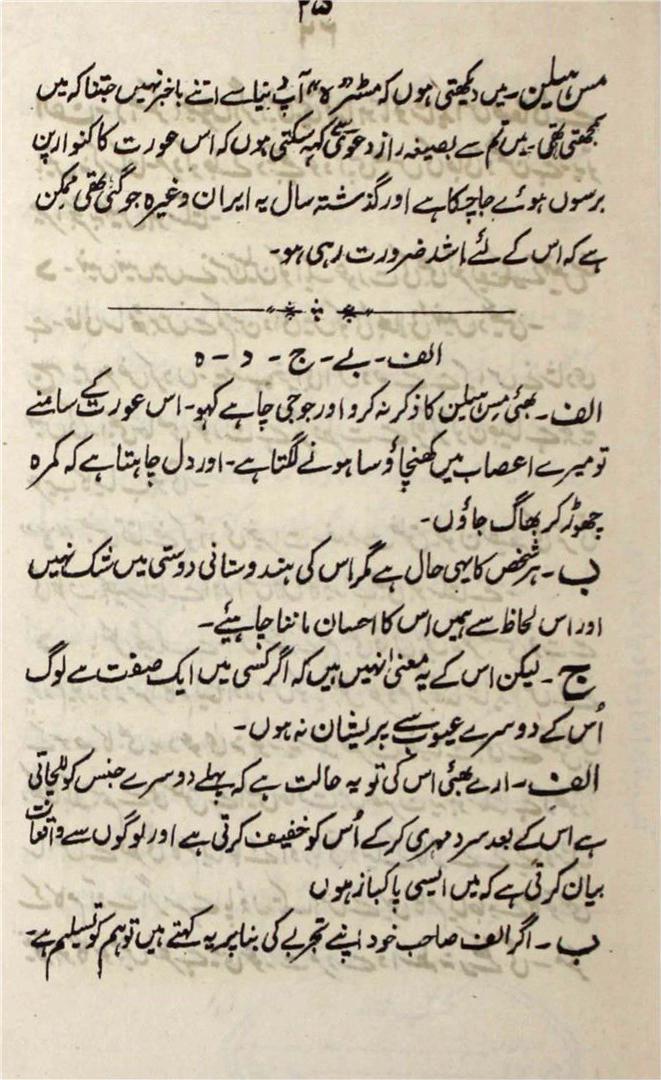 ۲۵
مس ہیلین۔ میں دیکھتی ہوں کہ مسٹر "ہ" آپ دنیا سے اتنے باخبر نہیں جتنا کہ میں
سمجھتی تھی۔ میں تم سے بصیغہ راز دعوے سے کہہ سکتی ہوں کہ اس عورت کا کنوارپن
برسوں ہوئے جاچکا ہے اور گذشتہ سال یہ ایران وغیرہ جو گئی تھی ممکن
ہے کہ اس کے لئے اشد ضرورت رہی ہو۔
الف ۔ بے ۔ ج ۔ د ۔ ہ
الف ۔ بھئی مس ہیلین کا ذکر نہ کرو اور جو جی چاہے کہو۔ اس عورت کے سامنے
تو میرے اعصاب میں کھنچاؤ سا ہونے لگتا ہے۔ اور دل چاہتا ہے کہ کمرہ
چھوڑ کر بھاگ جاؤں۔
ب ۔ ہر شخص کا یہی حال ہے مگر اس کی ہندوستانی دوستی میں شک نہیں
اور اس لحاظ سے ہمیں اس کا احسان ماننا چاہیئے۔
ج ۔ لیکن اس کے یہ معنیٰ نہیں ہیں کہ اگر کسی میں ایک صفت ہے لوگ
اُس کے دوسرے عیوب سے پریشان نہ ہوں۔
الف ۔ ارے بھئی اس کی تو یہ حالت ہے کہ پہلے دوسرے جنس کو للچاتی
ہے اس کے بعد سرد مہری کر کے اُس کو خفیف کرتی ہے اور لوگوں سے واقعات
بیان کرتی ہے کہ میں ایسی پاکباز ہوں
ب ۔ اگر الف صاحب خود اپنے تجربے کی بنا پر یہ کہتے ہیں تو ہم کو تسیلیم ہے۔